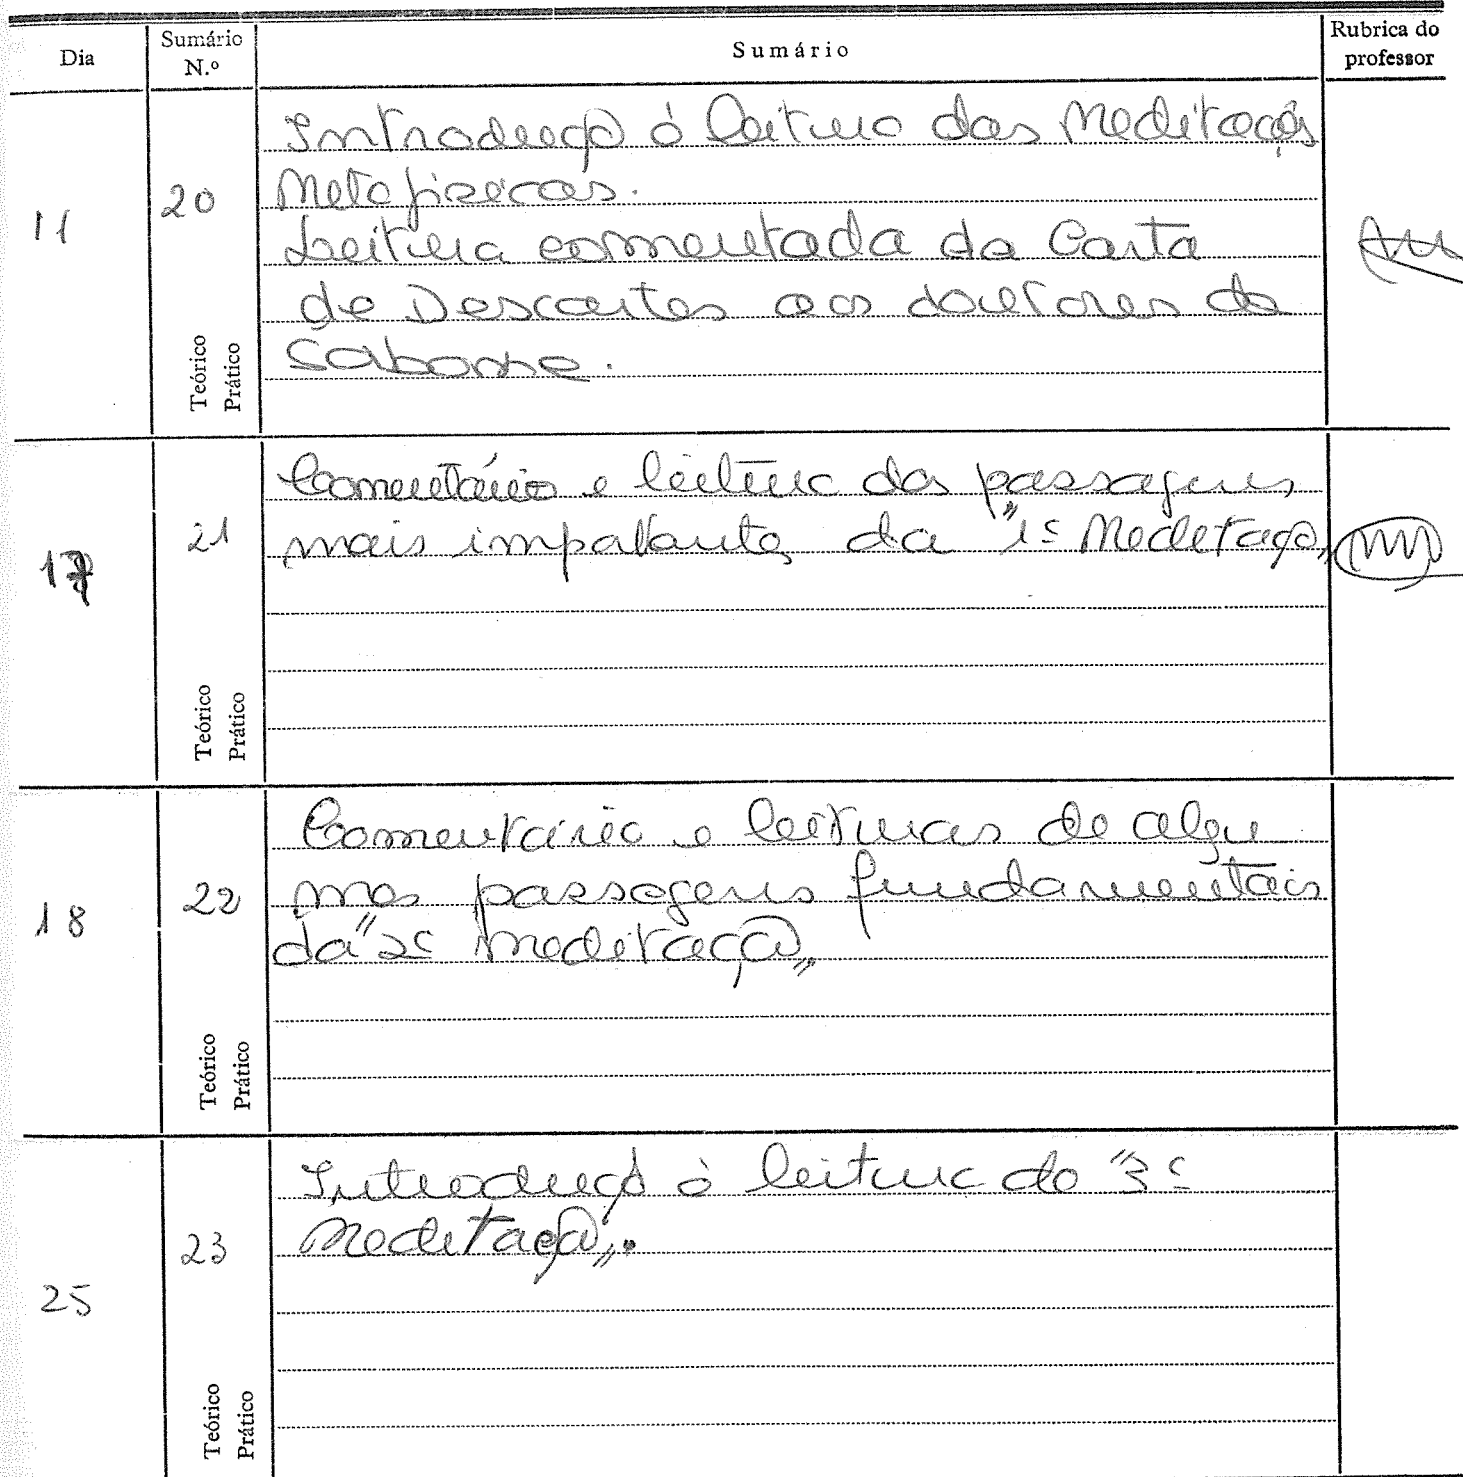 Dia
Sumário N.º
Sumário
Rubrica do professor
11
20
Introdução à leitura das Meditações
Metafísicas.
Leitura comentada da Carta
de Descartes aos doutores da
Sorbonne.
Teórico
Prático
17
21
Comentário e leitura das passagens
mais importantes da "1ª Meditação„
Teórico
Prático
18
22
Comentário e leituras de algu
mas passagens fundamentais
da "2ª Meditação„
Teórico
Prático
25
23
Introdução à leitura da "3ª
Meditação„.
Teórico
Prático